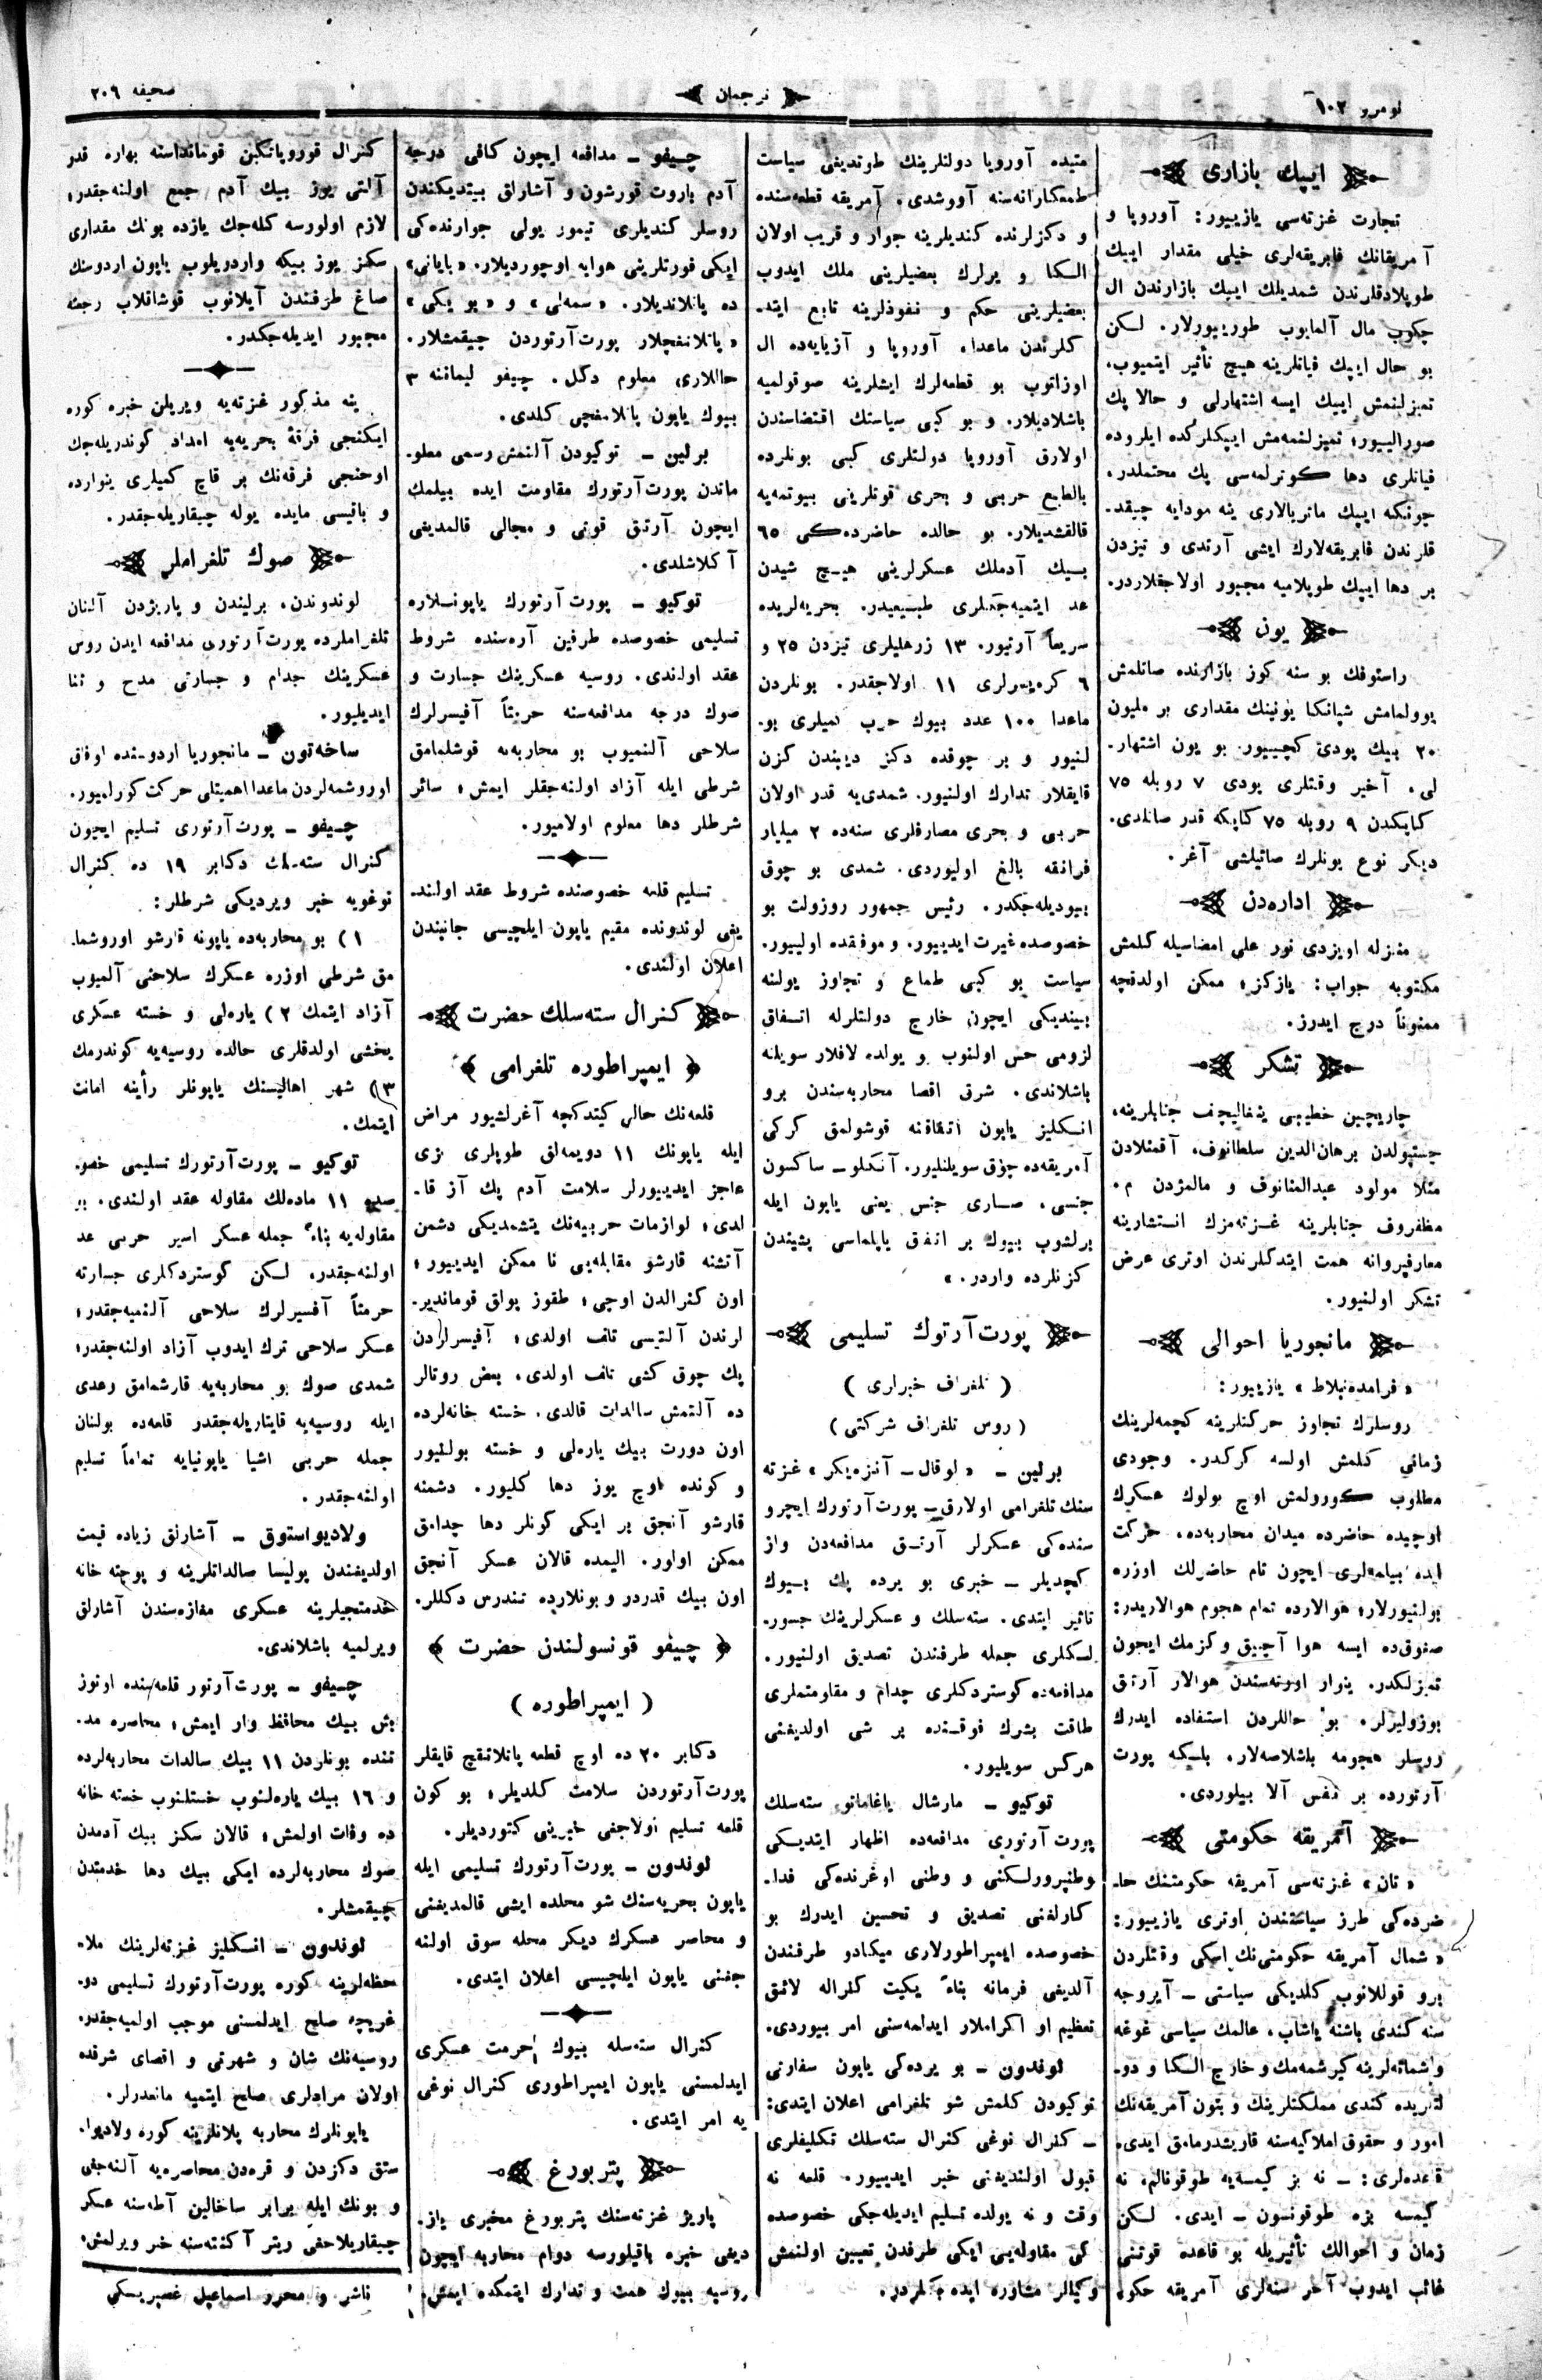 نومرو ۱۰۲
ترجمان
صحیفه ۲۰۹
ایپك بازاری
تجارت غزته‌سی یازییور: آوروپا و
آمریقانك فابریقه‌لری خیلی مقدار ایپك
طوپلادقلرندن شمدیلك ایپك بازارندن ال
چكوب مال آلمایوب طورییورلار. لكن
بو حال ایپك فیاتلرینه هیچ تأثیر ایتمیوب،
تمیزلنمش ایپك ایسه اشتهارلی و حالا پك
صورالییور؛ تمیزلنمه‌مش ایپكلركده ایلروده
فیاتلری دها كوترلمه‌سی پك محتملدر،
چونكه ایپك ماتریالاری ینه مودایه چیقد-
قلرندن فابریقه‌لارك ایشی آرتدی و تیزدن
بر دها ایپك طوپلامیه مجبور اولاجقلاردر.
یون
راستوفك بو سنه كوز بازارنده صاتلمش
یوولمامش شپانكا یونینك مقداری بر ملیون
۲۰ بیك پودی كچییور. بو یون اشتهار-
لی. آخیر وقتلری پودی ۷ روبله ۷۵
كاپكدن ۹ روبله ۷۵ كاپكه قدر صاتلدی.
دیكر نوع یونلرك صاتیلشی آغر.
اداره‌دن
منزله اویزدی نور علی امضاسیله كلمش
مكتوبه جواب: یازكز؛ ممكن اولدقچه
ممنوناً درج ایدرز.
تشكر
چاریچین خطیبی یثغالیچف جنابلرینه،
چستپولدن برهان‌الدین سلطانوف، آقمتلادن
منلا مولود عبدالمنانوف و مالمژدن م.
مظفروف جنابلرینه غزته‌مزك انتشارینه
معارفپروانه همت ایتدكلرندن اوتری عرض
تشكر اولنیور.
مانجوریا احوالی
« فرامده‌نبلاط » یازییور:
روسلرك تجاوز حركتلرینه كچمه‌لرینك
زمانی كلمش اولسه كركدر. وجودی
مطلوب كورولمش اوچ بولوك عسكرك
اوچیده حاضرده میدان محاربه‌ده، حركت
ایده بیلمه‌لری ایچون تام حاضرلك اوزره
بولنیورلار؛ هوالارده تمام هجوم هوالاریدر:
صغوق‌ده ایسه هوا آچیق و كزمك ایچون
تمیزلكدر. ینوار اورته‌سندن هوالار آرتق
بوزولیرلر. بو حاللردن استفاده ایدرك
روسلر هجومه باشلاصه‌لار، بلكه پورت
آرتورده بر نفس آلا بیلوردی.
آمریقه حكومتی
« تان » غزته‌سی آمریقه حكومتنك حا-
ضرده‌كی طرز سیاستندن اوتری یازییور:
« شمال آمریقه حكومتی‌نك ایكی وقتلردن
برو قوللانوب كلدیكی سیاستی ـ آیروجه
سنه كندی باشنه یاشاب، عالمك سیاسی غوغه
واشماته‌لرینه كیرشمه‌مك و خارج الكا و دو-
لتلریده كندی مملكتلرینك و بتون آمریقه‌نك
امور و حقوق املاكیه‌سنه قاریشدرمامق ایدی.
قاعده‌لری: ـ نه بز كیمسه‌یه طوقونالم، نه
كیمسه بزه طوقونسون ـ ایدی. لكن
زمان و احوالك تأثیریله بو قاعده قوتنی
غائب ایدوب آخر سنه‌لری آمریقه حكو-
متیده آوروپا دولتلرینك طوتدیغی سیاست
طمعكارانه‌سنه آووشدی. آمریقه قطعه‌سنده
و دكزلرنده كندیلرینه جوار و قریب اولان
الكا و یرلرك بعضیلرینی ملك ایدوب
بعضیلرینی حكم و نفوذلرینه تابع ایتد-
كلرندن ماعدا، آوروپا و آزیایه‌ده ال
اوزاتوب بو قطعه‌لرك ایشلرینه صوقولمیه
باشلادیلار. و بو كبی سیاستك اقتضاسندن
اولارق آوروپا دولتلری كبی بونلرده
بالطبع حربی و بحری قوتلرینی بیوتمه‌یه
قالقشدیلار. بو حالده حاضرده‌كی ۶۵
بیك آدملك عسكرلرینی هیچ شیدن
عد ایتمیه‌جكلری طبیعیدر. بحریه‌لریده
سریعاً آرتیور. ۱۳ زرهلیلری تیزدن ۲۵ و
۶ كره‌یسرلری ۱۱ اولاجقدر. بونلردن
ماعدا ۱۰۰ عدد بیوك حرب كمیلری بو-
لنیور و بر چوقده دكز دیبندن كزن
قایقلار تدارك اولنیور. شمدی‌یه قدر اولان
حربی و بحری مصارفلری سنه‌ده ۲ میلیار
فرانقه بالغ اولیوردی. شمدی بو چوق
بیودیله‌جكدر. رئیس جمهور روزولت بو
خصوصده غیرت ایدییور. و موفقده اولییور.
سیاست بو كبی طماع و تجاوز یولنه
بیندیكی ایچون خارج دولتلرله اتفاق
لزومی حس اولنوب و یولده لافلار سویلنه
باشلاندی. شرق اقصا محاربه‌سندن برو
انكلیز یاپون اتفاقنه قوشولمق كركی
آمریقه‌ده چوق سویلنلیور. آنكلو ـ ساكسون
جنسی، صاری جنس یعنی یاپون ایله
برلشوب بیوك بر اتفق یاپلماسی پشیندن
كزنلرده واردر. »
پورت آرتوك تسلیمی
( تلغراف خبراری )
( روس تلغراف شركتی )
برلین ـ « لوقال ـ آنزه‌یكر » غزته
سنك تلغرامی اولارق ـ پورت آرتورك ایچرو
سنده‌كی عسكرلر آرتق مدافعه‌دن واز
كچدیلر ـ خبری بو یرده پك بیوك
تاثیر ایتدی. سته‌سلك و عسكرلرینك جسور-
لكلری جمله طرفندن تصدیق اولنیور.
مدافعه‌ده كوستردكلری چدام و مقاومتلری
طاقت بشرك فوقنده بر شی اولدیغنی
هركس سویلیور.
توكیو ـ مارشال یاغاماتو سته‌سلك
پورت آرتوری مدافعه‌ده اظهار ایتدیكی
وطنپرورلكنی و وطنی اوغرنده‌كی فدا-
كارلغنی تصدیق و تحسین ایدرك بو
خصوصده ایمپراطورلاری میكادو طرفندن
آلدیغی فرمانه بناءً یكیت كنراله لائق
تعظیم او اكراملار ایدلمه‌سنی امر بیوردی.
لوندون ـ بو یرده‌كی یاپون سفارتی
توكیودن كلمش شو تلغرامی اعلان ایتدی:
ـ كنرال نوغی كنرال سته‌سلك تكلیفلری
قبول اولندیغنی خبر ایدییور. قلعه نه
وقت و نه یولده تسلیم ایدیله‌جكی خصوصده
كی مقاوله‌یی ایكی طرفدن تعیین اولنمش
وكیللر مشاوره ایده‌جكلردر.
چیفو ـ مدافعه ایچون كافی درجه
آدم باروت قورشون و آشارلق بیتدیكندن
روسلر كندیلری تیمور یولی جوارنده‌كی
ایكی فورتلرینی هوایه اوچوردیلار. « پایانی »
ده یاتلاندیلار. « سمه‌لی » و « بو یكی »
« یاتلانغچلار پورت آرتوردن چیقمشلار.
حاللاری معلوم دكل. چیفو لیماننه ۳
بیوك یاپون یاتلانغچی كلدی.
برلین ـ توكیودن آلنمش رسمی معلو-
ماتدن پورت آرتورك مقاومت ایده بیلمك
ایچون آرتق قوتی و مجالی قالمدیغی
آكلاشلدی.
توكیو ـ پورت آرتورك یاپونسلاره
تسلیمی خصوصده طرفین آره‌سنده شروط
عقد اولندی. روسیه عسكرینك جسارت و
صوك درجه مدافعه‌سنه حرمتاً آفیسرلرك
سلاحی آلنمیوب بو محاربه‌یه قوشلمامق
شرطی ایله آزاد اولنه‌جقلر ایمش؛ سائر
شرطلر دها معلوم اولامیور.
تسلیم قلعه خصوصنده شروط عقد اولند-
یغی لوندونده مقیم یاپون ایلچیسی جانبندن
اعلان اولندی.
كنرال سته‌سلك حضرت
﴿ ایمپراطوره تلغرامی ﴾
قلعه‌نك حالی كیتدكچه آغرلشیور مراض
ایله یاپونك ۱۱ دویمه‌لق طوپلری بزی
عاجز ایدییورلر سلامت آدم پك آز قا-
لدی؛ لوازمات حربیه‌نك یتشمدیكی دشمن
آتشنه قارشو مقابله‌یی نا ممكن ایدییور؛
اون كنرالدن اوچی؛ طقوز پولق قوماندیر-
لرندن آلتیسی تلف اولدی؛ آفیسرلردن
پك چوق كشی تلف اولدی. بعض روتالر
ده آلتمش سالدات قالدی. خسته خانه‌لرده
اون دورت بیك یاره‌لی و خسته بولنیور
و كونده اوچ یوز دها كلیور. دشمنه
قارشو آنجق بر ایكی كونلر دها چدامق
ممكن اولور. الیمده قالان عسكر آنجق
اون بیك قدردر و بونلارده تندرس دكللر.
﴿ چیفو قونسولندن حضرت ﴾
( ایمپراطوره )
دكابر ۲۰ ده اوچ قطعه یاتلانقچ قایقلر
پورت آرتوردن سلامت كلدیلر؛ بو كون
قلعه تسلیم اولاجغی خبرینی كتوردیلر.
لوندون ـ پورت آرتورك تسلیمی ایله
یاپون بحریه‌سنك شو محلده ایشی قالمدیغنی
و محاصر عسكرك دیكر محله سوق اولنه
جغنی یاپون ایلچیسی اعلان ایتدی.
كنرال سته‌سله بیوك احرمت عسكری
ایدلمسنی یاپون ایمپراطوری كنرال نوغی
یه امر ایتدی.
پتربورغ
پاریژ غزته‌سنك پتربورغ مخبری یاز-
دیغی خبره باقیلورسه دوام محاربه ایچون
روسیه بیوك همت و تدارك ایتمكده ایمش.
كنرال قوروپاتكین قومانداسنه بهاره قدر
آلتی یوز بیك آدم جمع اولنه‌جقدر؛
لازم اولورسه كله‌جك یازده بونك مقداری
سكز یوز بیكه واردویلوب یاپون اردوسنك
صاغ طرفندن آیلانوب قوشاقلاب رجعته
مجبور ایدیله‌جكدر.
ینه مذكور غزته‌یه ویریلن خبره كوره
ایكنجی فرقهٔ بحریه‌یه امداد كوندریله‌جك
اوچنجی فرقه‌نك بر قاچ كمیلری ینوارده
و باقیسی مایده یوله چیقاریله‌جقدر.
صوك تلغراملر
لوندوندن، برلیندن و پاریژدن آلنان
تلغراملرده پورت آرتوری مدافعه ایدن روس
عسكرینك چدام و جسارتی مدح و ثنا
ایدیلیور.
ساخه‌تون ـ مانجوریا اردوسنده اوفاق
اوروشمه‌لردن ماعدا اهمیتلی حركت كورلمیور.
چیفو ـ پورت آرتوری تسلیم ایچون
كنرال سته‌سلك دكابر ۱۹ ده كنرال
نوغویه خبر ویردیكی شرطلر:
۱ ) بو محاربه‌ده یاپونه قارشو اوروشما-
مق شرطی اوزره عسكرك سلاحنی آلمیوب
آزاد ایتمك ۲ ) یاره‌لی و خسته عسكری
یخشی اولدقلری حالده روسیه‌یه كوندرمك
۳ ) شهر اهالیسنك یاپونلر رأینه امانت
ایتمك.
توكیو ـ پورت آرتورك تسلیمی خصو-
صیه ۱۱ ماده‌لك مقاوله عقد اولندی. بو
مقاوله‌یه بناءً جمله عسكر اسیر حربی عد
اولنه‌جقدر، لكن كوستردكلری جسارته
حرمتاً آفسیرلرك سلاحی آلنمیه‌جقدر؛
عسكر سلاحی ترك ایدوب آزاد اولنه‌جقدر؛
شمدی صوك بو محاربه‌یه قارشمامق وعدی
ایله روسیه‌یه قایتاریله‌جقدر قلعه‌ده بولنان
جمله حربی اشیا یاپونیایه تماماً تسلیم
اولنه‌جقدر.
ولادیواستوق ـ آشارلق زیاده قیمت
اولدیغندن پولیسا صالداتلرینه و پوچته خانه
خدمتچیلرینه عسكری مغازه‌سندن آشارلق
ویرلمیه باشلاندی.
چیفو ـ پورت آرتور قلعه‌سنده اوتوز
بش بیك محافظ وار ایمش؛ محاصره مد-
تنده بونلردن ۱۱ بیك سالدات محاربه‌لرده
و ۱۶ بیك یاره‌لنوب خستلنوب خسته خانه
ده وفات اولمش؛ قالان سكز بیك آدمدن
صوك محاربه‌لرده ایكی بیك دها خدمتدن
چیقمشلر.
لوندون ـ انكلیز غزته‌لرینك ملا-
حظه‌لرینه كوره پورت آرتورك تسلیمی دو-
غریجه صلح ایدلمسنی موجب اولمیه‌جقدر.
روسیه‌نك شان و شهرتی و اقصای شرقده
اولان مرادلری صلح ایتمیه مانعدرلر.
یاپونلرك محاربه پلانلرینه كوره ولادیوا-
ستق دكزدن و قره‌دن محاصره‌یه آلنه‌جغی
و بونك ایله برابر ساخالین آطه‌سنه عسكر
چیقاریلاجغی ریتر آكنته‌سنه خبر ویرلمش.
ناشر و محرر اسماعیل غصپرینسكی